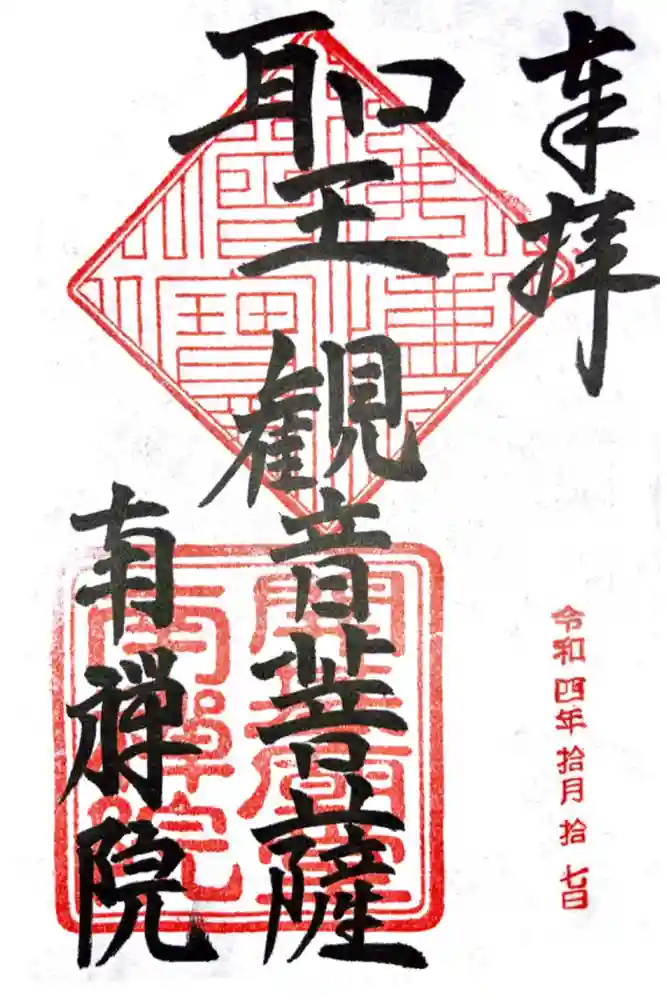 奉拝
令和四年拾月拾七日
聖観音菩薩
南禅院